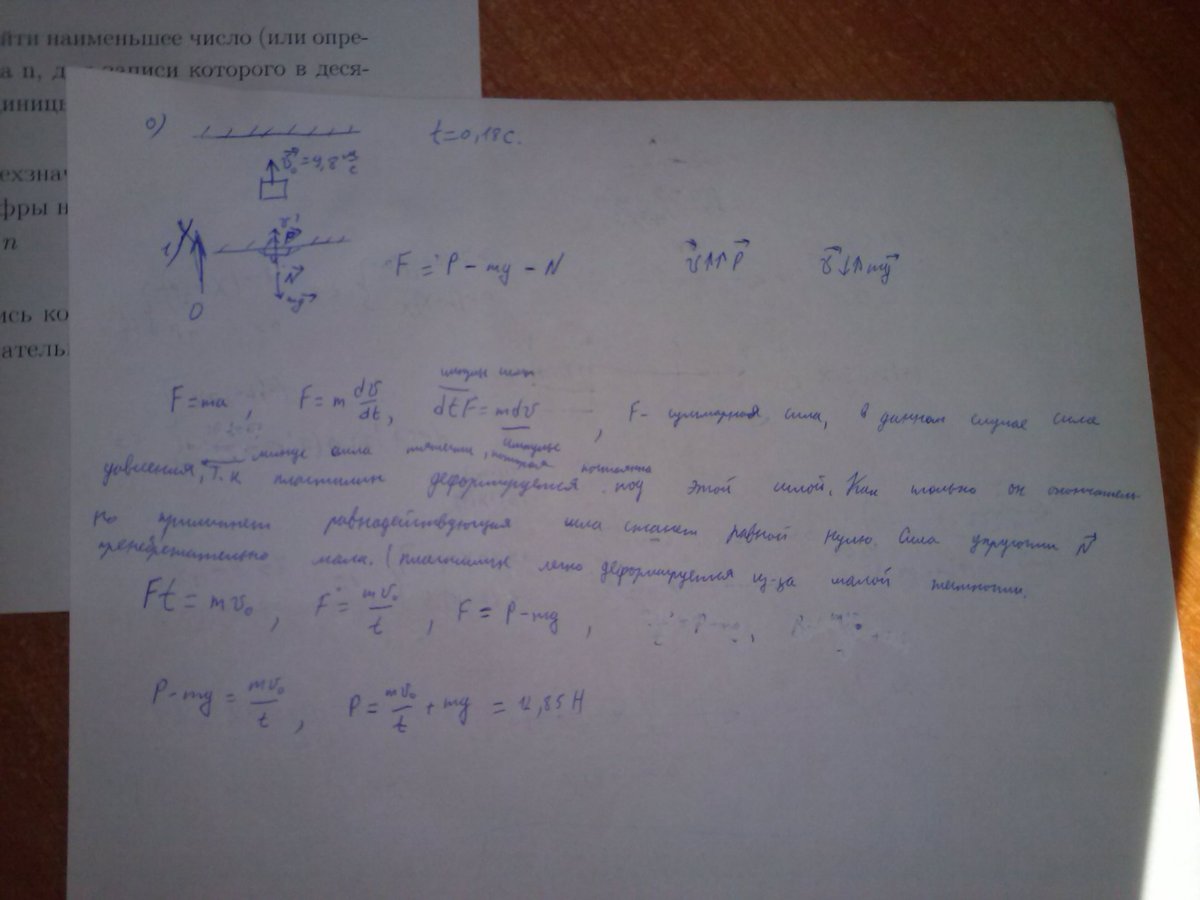 йти наименьшее число (или опре-
а n, для записи которого в деся-
диницы
ехзнач
фры н
n
ись ко
атель
0) t=0,18с.
v₀=9,8 м/с
v
P
N
mg
0
F = P - mg - N v↑↑P v↓↑mg
F=ma, F=m dv/dt, dtF=mdv, F- суммарная сила, в данном случае сила
давления, минус сила тяжести, которая постоянна
т.к пластилин деформируется под этой силой. Как только он окончатель-
но прилипнет равнодействующая сила станет равной нулю. Сила упругости N
пренебрежительно мала. (пластилин легко деформируется из-за малой
Ft = mv₀, F = mv₀/t, F = P-mg,
P-mg = mv₀/t, P = mv₀/t + mg = 12,85 Н